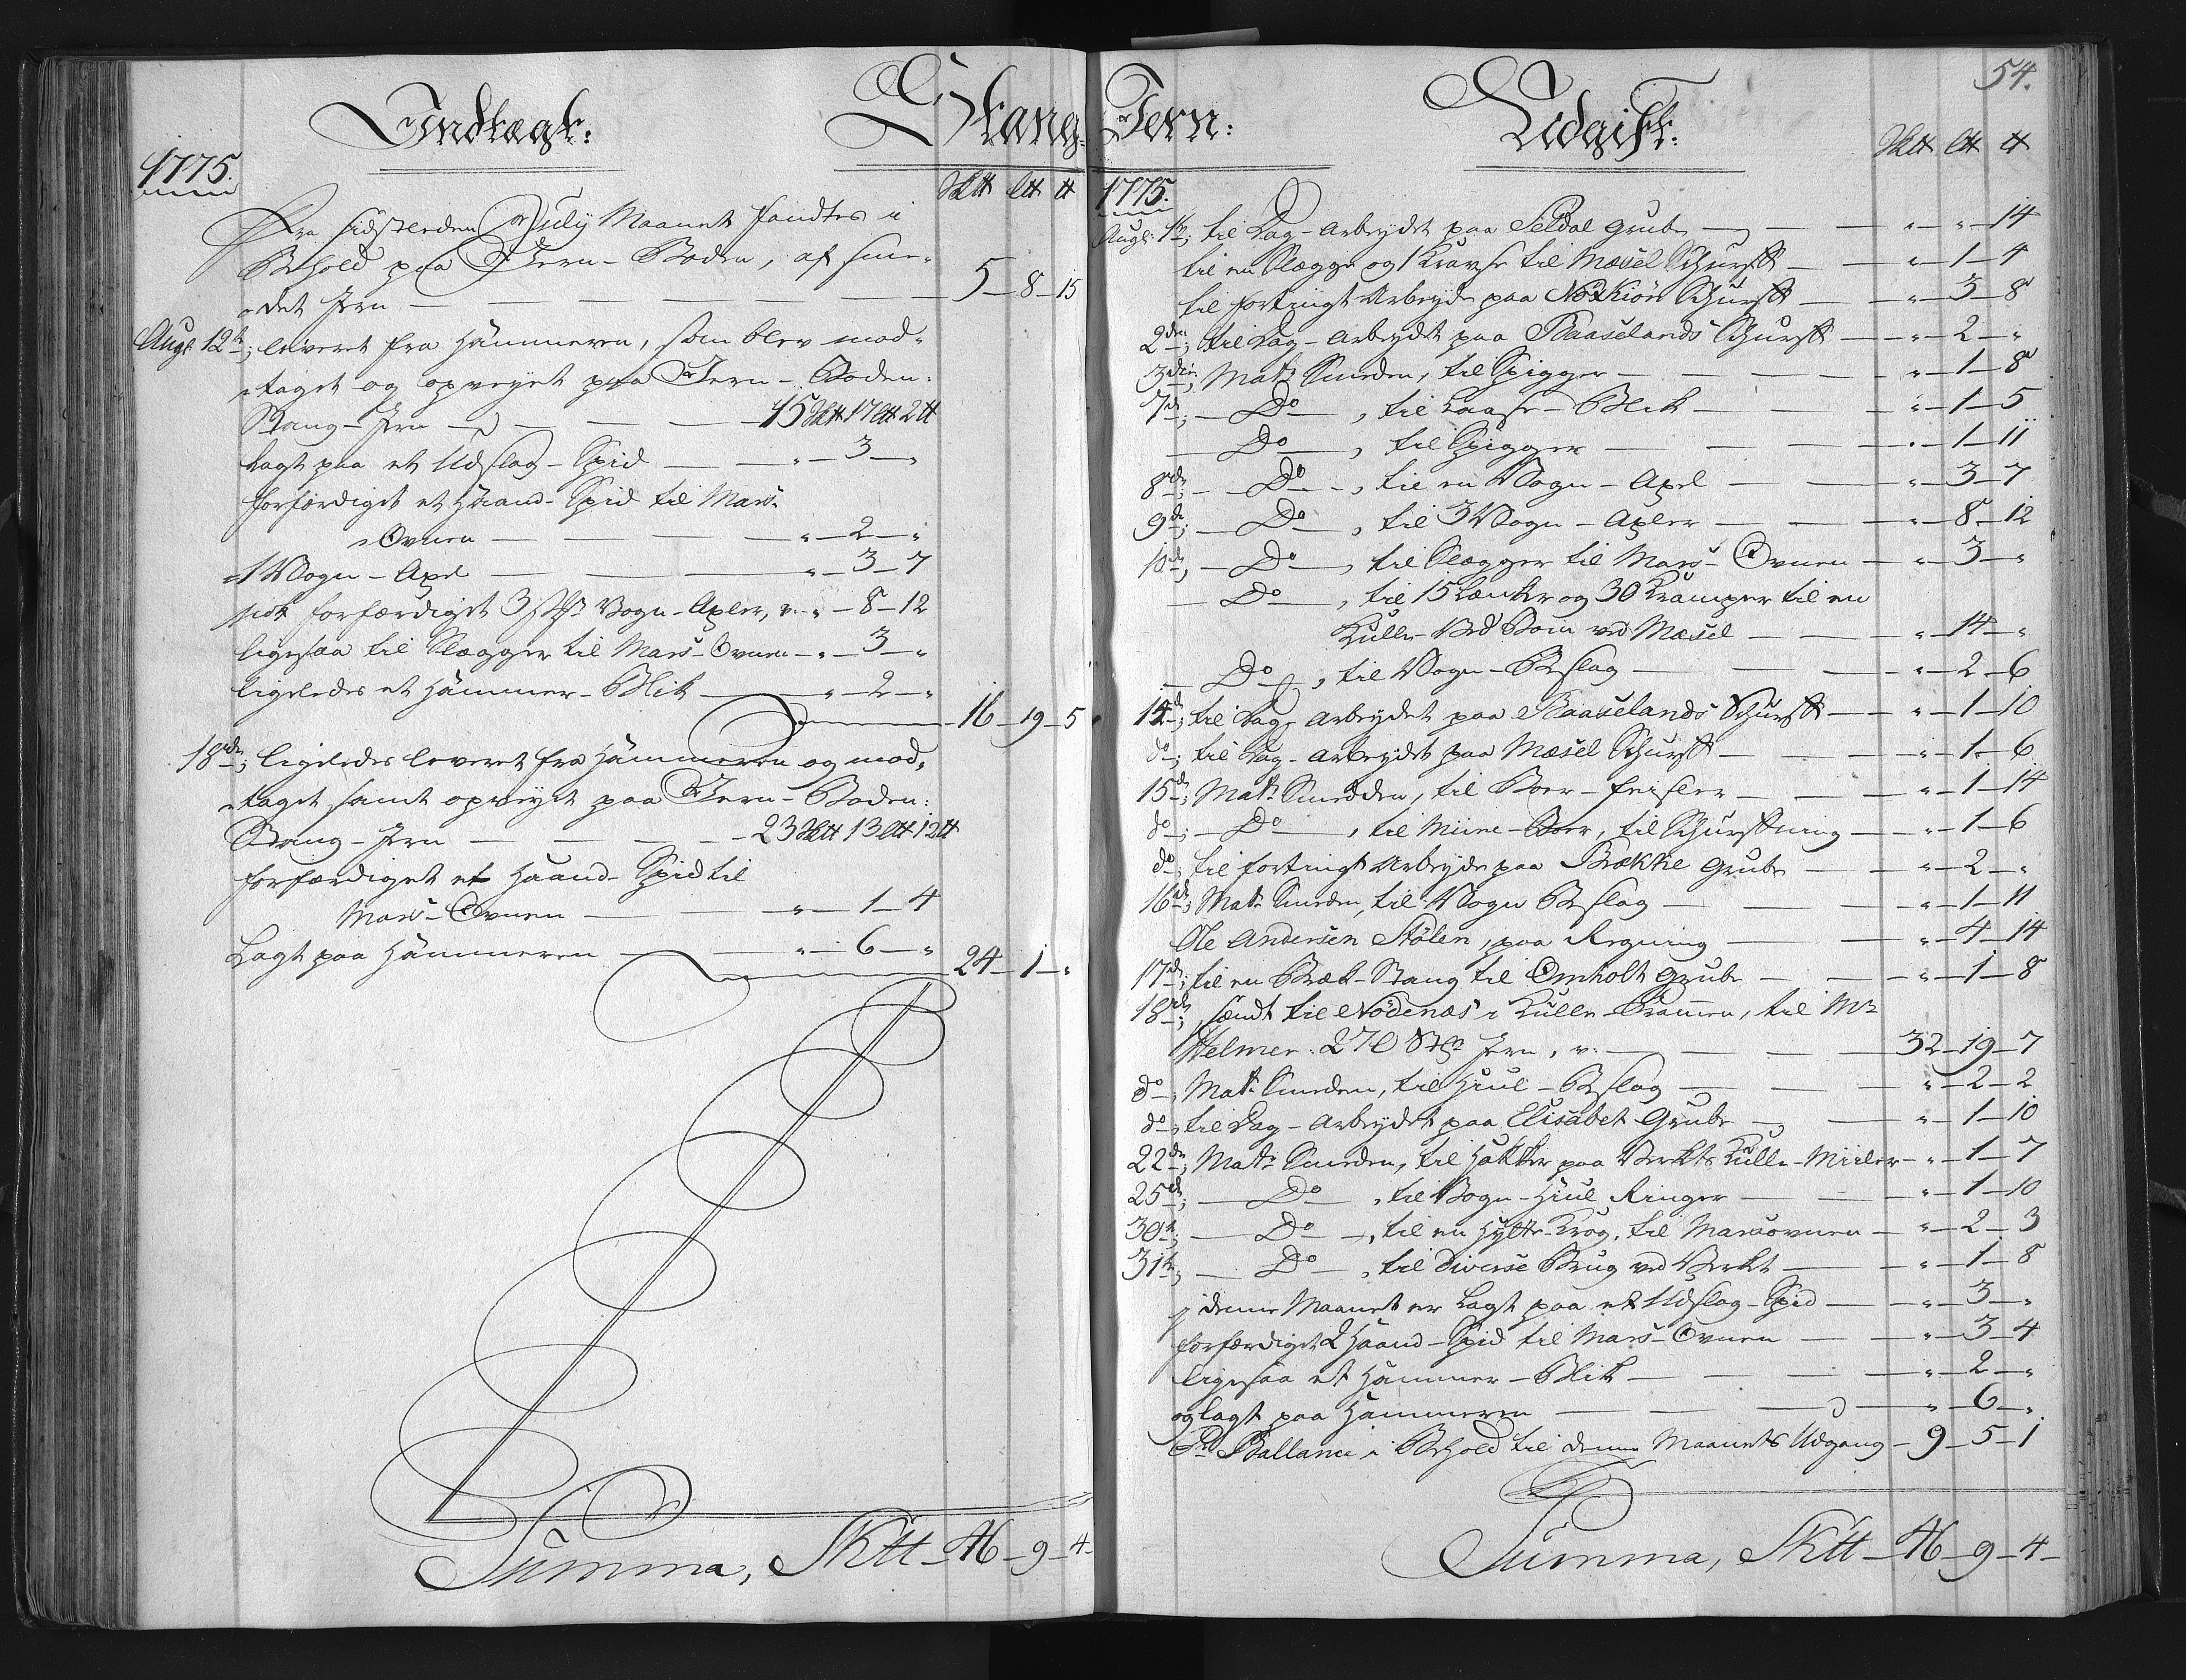 Indtægt:
Stang-
1775.
Sk℔ L℔ ℔
Fra sidstleeden July Maanet fandtes i
Behold paa Jern-Boden, af smee-
det Jern — 5 — 8 — 15
Augt 12te; leveret fra Hammeren, som blev mod-
taget og opveyet paa Jern-Boden:
Stang-Jern — 15 Sk℔ 17 L℔ 2 ℔
Lagt paa et Udslag-Spid — " — 3 — "
forfærdiget et Haand-Spid til Mars-
Ovnen — " — 2 — "
1 Vogn-Axel — " — 3 — 7
nok forfærdiget 3 st: Vogn-Axler, v: " — 8 — 12
ligesaa til Slægger til Mars-Ovnen — " — 3 — "
ligeledes et Hammer-Blik — " — 2 — "
16 — 19 — 5
18de; ligeledes leveret fra Hammeren og mod-
taget samt opveyet paa Jern-Boden:
Stang-Jern — 23 Sk℔ 13 L℔ 12 ℔
forfærdiget et Haand-Spid til
Mars-Ovnen — " — 1 — 4
Lagt paa Hammeren — " — 6 — "
24 — 1 — "
Summa, Sk℔ — 46 — 9 — 4 —
54.
Jern:
Udgift:
Sk℔ L℔ ℔
1775.
Augt: 1te; til Dag-Arbeydet paa Seldal Grube — " — " — 14
til en Slægge og 1 Kravse til Mæsel Schurff — " — 1 — 4
til fortingt Arbeyde paa Schurff — " — 3 — 8
2den; til Dag-Arbeydet paa Baaselands Schurff — " — 2 — "
3die; Mats Smeden, til Spigger — " — 1 — 8
7de; — Do — , til Laase-Blik — " — 1 — 5
— Do — , til Spigger — " — 1 — 11
8de; — Do — , til en Vogn-Axel — " — 3 — 7
9de; — Do — , til 3 Vogn-Axler — " — 8 — 12
10de; — Do — , til Slægger til Mars-Ovnen — " — 3 — "
— Do — , til 15 Lænker og 30 Kramper til en
Kulle-Ved Bom ved Mæsel — " — 14 — "
— Do — , til Vogn-Beslag — " — 2 — 6
14de; til Dag-Arbeydet paa Baaselands Schurff — " — 1 — 10
do; til Dag-Arbeydet paa Mæsel Schurff — " — 1 — 6
15de; Mats Smedden, til Boer-feisler — " — 1 — 14
do; — Do — , til Mine-Boer, til Schurffning — " — 1 — 6
do; til fortingt Arbeyde paa Brække Grube — " — 2 — "
16de; Mats Smeden, til Vogn Beslag — " — 1 — 11
Ole Andersen Stølen, paa Regning — " — 4 — 14
17de; til en Bræk-Stang til Omholt Grube — " — 1 — 8
18de; sendt til Nødenæs i Kulle-Prammen, til Mr
Helmer: 270 Stgr Jern, v: — 32 — 19 — 7
do; Mats Smeden, til Hiul-Beslag — " — 2 — 2
do; til Dag-Arbeydet paa Elisabet Grube — " — 1 — 10
22de; Mats Smeden, til Hakker paa Verkets Kulle-Miiler — " — 1 — 7
25de; — Do — , til Vogn-Hiul Ringer — " — 1 — 10
30te; — Do — , til en Hytte-Krog, til Marsovnen — " — 2 — 3
31te; — Do — , til diverse Brug ved Verket — " — 1 — 8
j denne Maanet er Lagt paa et Udslag-Spid — " — 3 — "
forfærdiget 2 Haand-Spid til Mars-Ovnen — " — 3 — 4
ligesaa et Hammer-Blik — " — 2 — "
og lagt paa Hammeren — " — 6 — "
Pr Ballance i Behold til denne Maanets Udgang — 9 — 5 — 1
Summa, Sk℔ — 46 — 9 — 4 —